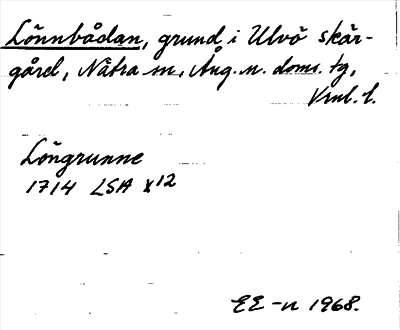 Lönnbådan, grund i Ulvö skär-
gård, Nätra sn, Ång. n. doms. tg,
Vrnl. l.
Löngrunne
1714 LSA X12
EE-n 1968.